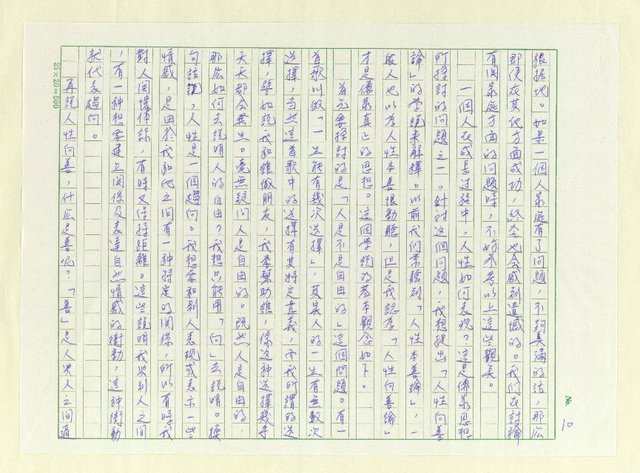 No. 10
據地。如果一個人家庭有了問題，不夠美滿的話，那么
即使在其他方面成功，終究也會感到遺憾的。我們在討論
有關家庭方面的問題時，不妨參考以上這些觀美。
一個人在成長過程中，人性如何表現？這是儒家思想
所探討的問題之一。針對這個問題，我想提出「人性向善
論」的學說來解釋。以前我們常聽到「人性本善論」，一
般人也以為人性本善很動聽，但是我認為「人性向善論」
才是儒家真正的思想。這個學說的基本觀念如下。
首先要探討的是「人是不是自由的」這個問題。有一
首歌叫做「一生能有幾次選擇」，其實人的一生有無數次
選擇，當然這首歌中的選擇有其特定意義，而我所謂的選
擇，譬如說我和誰做朋友，我要幫助誰，像這種選擇幾乎
天天都會發生。毫無疑問人是自由的。既然人是自由的
那麼如何去說明人的自由？我想只能用「向」去說明。換
句話說，人性是一個趨向。我想要和別人表現或表示一些
情感，是由於我和他之間有一種特定的關係，所以有時我
對人關懷備至，有時又保持距離。這些說明我與別人之間
，有一種想要建立關係及表達自然情感的衝動，這種衝動
就代表趨向。
再說人性向善，什么是善呢？「善」是人與人之間適
25×20=500